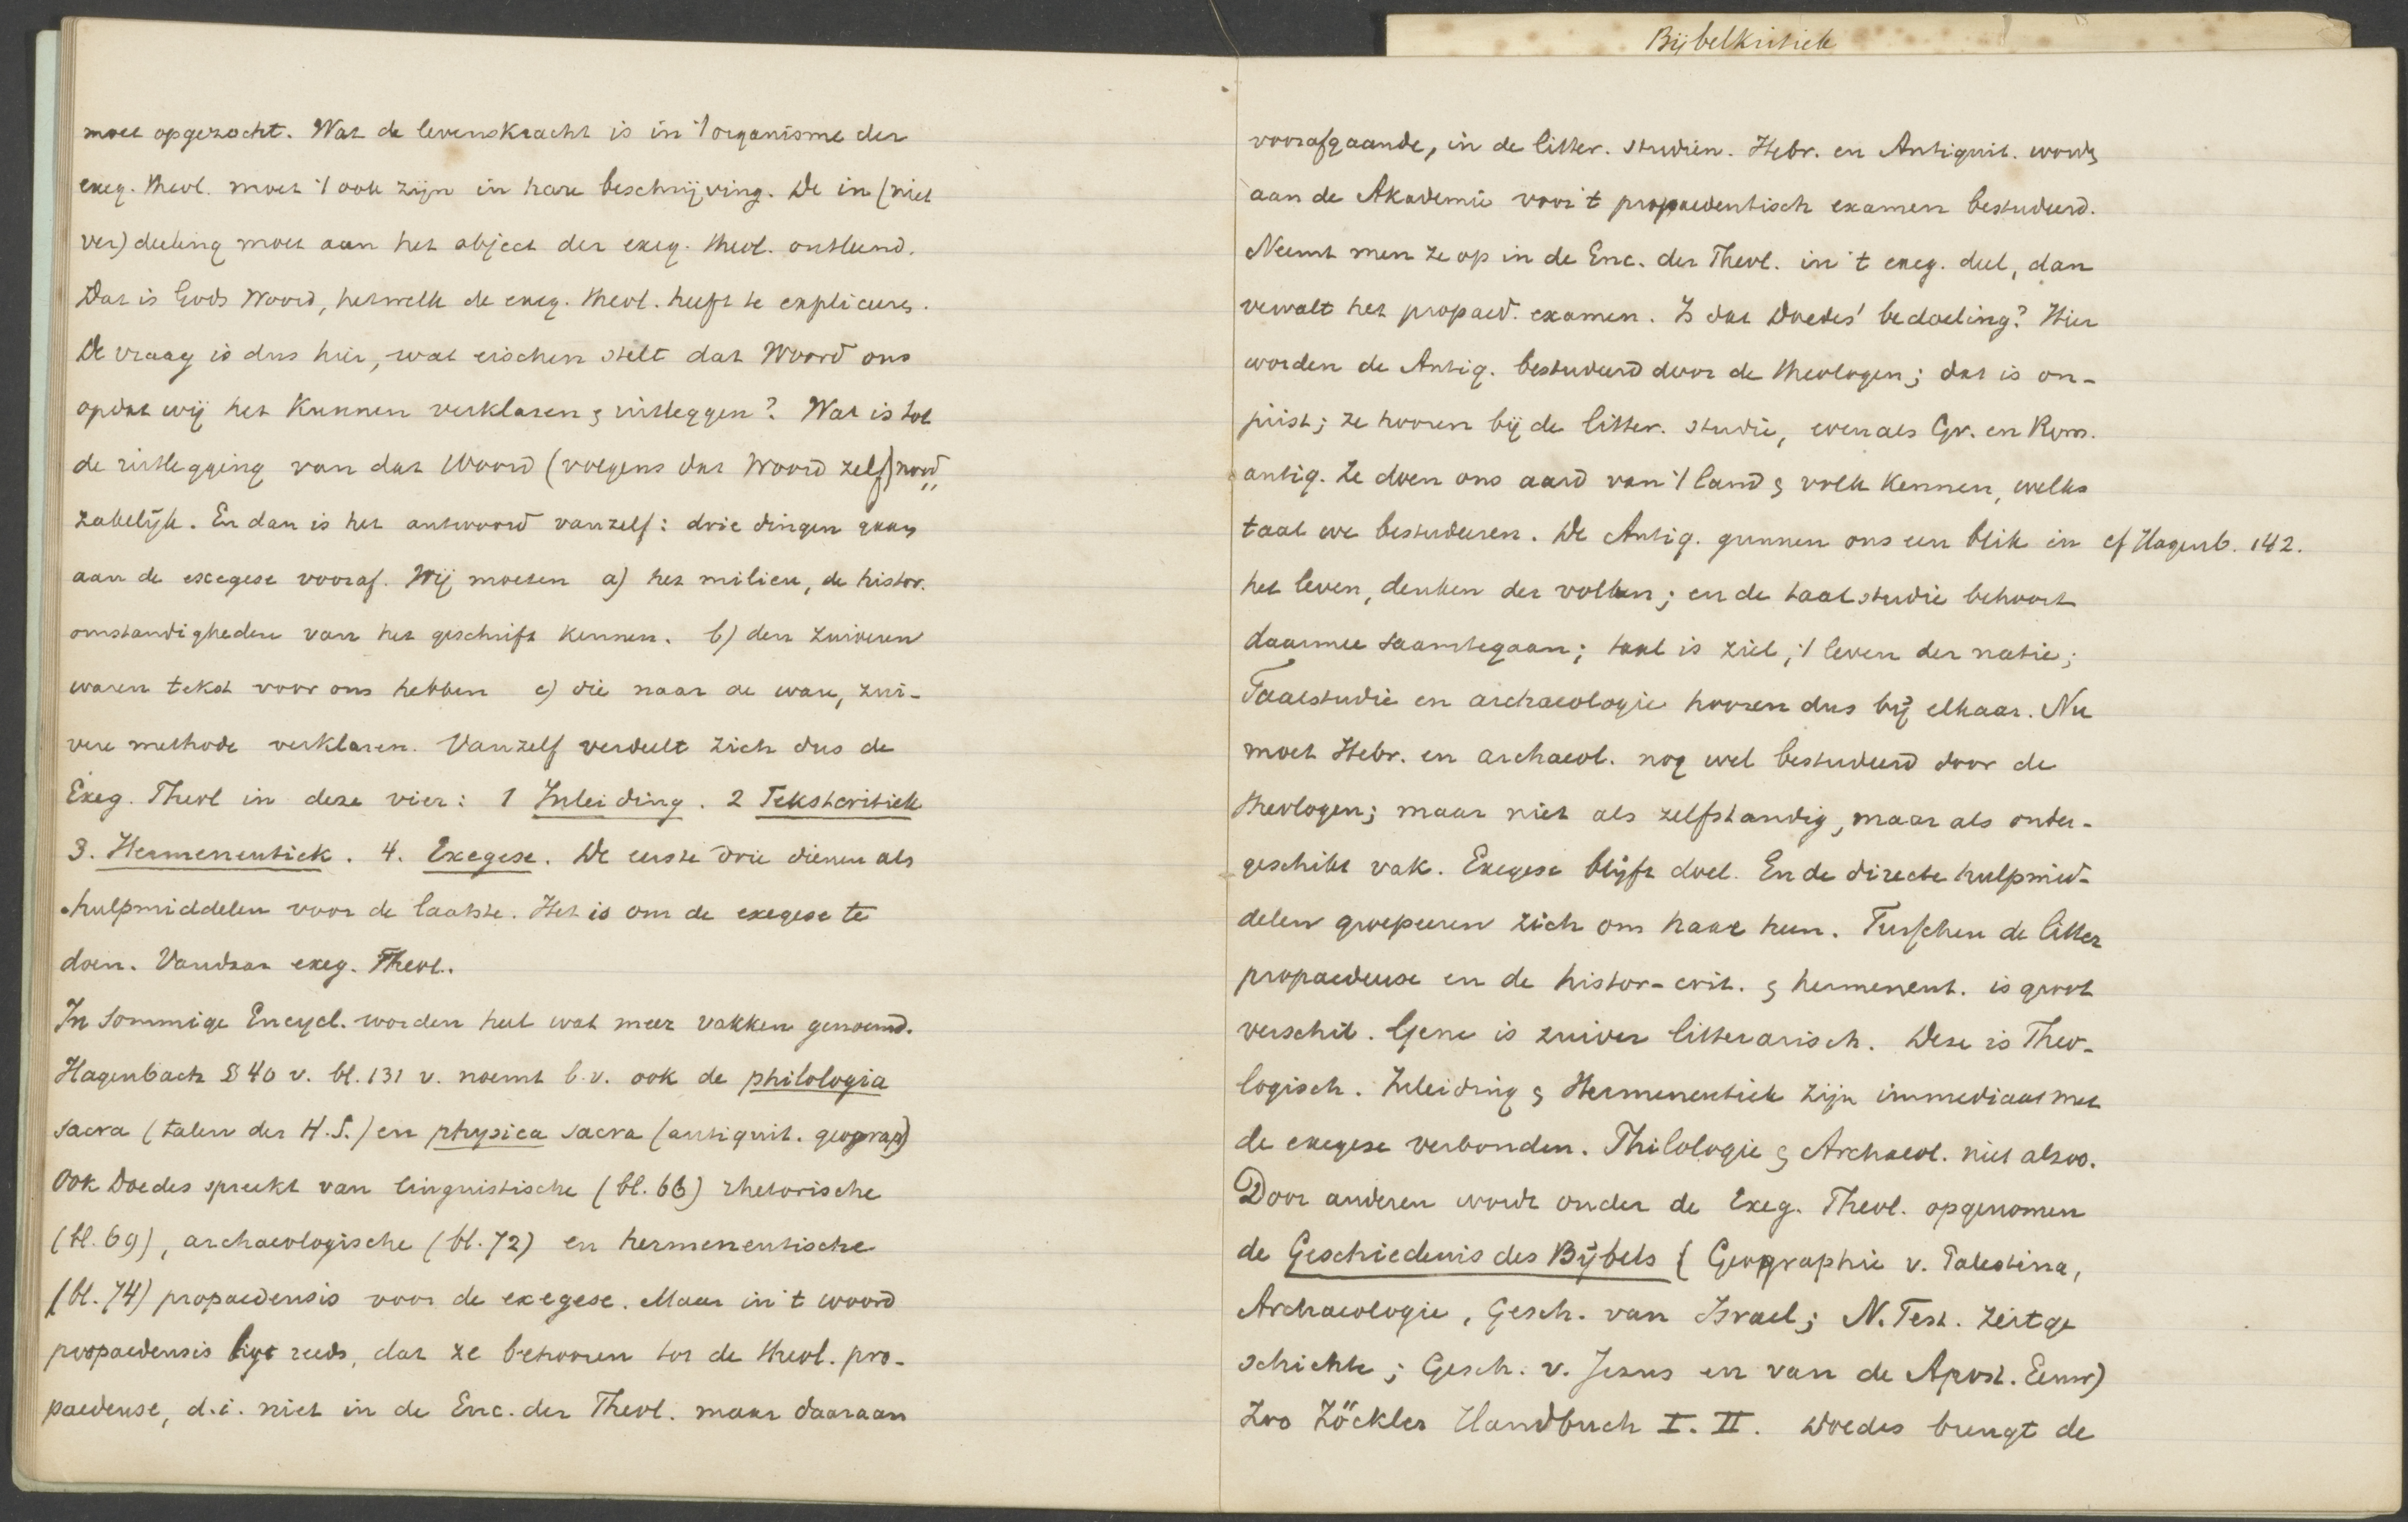 moet opgezocht. Wat de levenskracht is in 't organisme der
exeg. theol. moet 't ook zijn in hare beschrijving. De in (niet
ver)deeling moet aan het object der exeg. theol. ontleend.
Dat is Gods Woord, hetwelk de exeg. theol. heeft te expliceeren.
De vraag is dus hier, wat eischen stelt dat Woord ons
opdat wij het kunnen verklaren & uitleggen? Wat is tot
de uitlegging van dat Woord (volgens dat Woord zelf) nood„
zakelijk. En dan is het antwoord vanzelf: drie dingen gaan
aan de exegese vooraf. Wij moeten a) het milieu, de histor.
omstandigheden van het geschrift kennen. b) den zuiveren
waren tekst voor ons hebben c) die naar de ware, zui-
vere methode verklaren. Vanzelf verdeelt zich dus de
Exeg. Theol in deze vier: 1 Inleiding. 2 Tekstcritiek
3. Hermeneutiek. 4. Exegese. De eerste drie dienen als
hulpmiddelen voor de laatste. Het is om de exegese te
doen. Vandaar exeg. Theol.
In sommige Encycl. worden heel wat meer vakken genoemd.
Hagenbach § 40 v. bl. 131 v. noemt b.v. ook de philologia
sacra (talen der H.S.) en physica sacra (antiquit. geograph)
Ook Doedes spreekt van linguistische (bl. 66) rhetorische
(bl. 69), archaeologische (bl. 72) en hermeneutische
(bl. 74) propaedeusis voor de exegese. Maar in 't woord
propaedeusis ligt reeds, dat ze behooren tot de theol. pro-
paedeuse, d.i. niet in de Enc. der Theol. maar daaraan
Bijbelkritiek
voorafgaande, in de litter. studiën. Hebr. en Antiquit. worden
aan de Akademie voor 't propaedeutisch examen bestudeerd.
Neemt men ze op in de Enc. der Theol. in 't exeg. deel, dan
vervalt het propaed. examen. Is dat Doedes' bedoeling? Hier
worden de Antiq. bestudeerd door de theologen; dat is on-
juist; ze hooren bij de litter. studie, evenals Gr. en Rom.
antiq. Ze doen ons aard van 't land & volk kennen, welks
taal we bestudeeren. De Antiq. gunnen ons een blik in cf Hagenb. 142.
het leven, denken der volken; en de taalstudie behoort
daarmee saamtegaan; taal is ziel, 't leven der natie;
Taalstudie en archaeologie hooren dus bij elkaar. Nu
moet Hebr. en archaeol. nog wel bestudeerd door de
theologen; maar niet als zelfstandig, maar als onder-
geschikt vak. Exegese blijft doel. En de directe hulpmid-
delen groepeeren zich om haar heen. Tusschen de litter
propaedeuse en de histor-crit. & hermeneut. is groot
verschil. Gene is zuiver litterarisch. Deze is Theo-
logisch. Inleiding & Hermeneutiek zijn immediaat met
de exegese verbonden. Philologie & Archaeol. niet alzoo.
Door anderen wordt onder de Exeg. Theol. opgenomen
de Geschiedenis des Bijbels (Geographie v. Palestina,
Archaeologie, Gesch. van Israel; N. Test. Zeitge
schichte; Gesch. v. Jezus en van de Apost. Eeuw)
Zoo Zöckler Handbuch I. II. Doedes brengt de